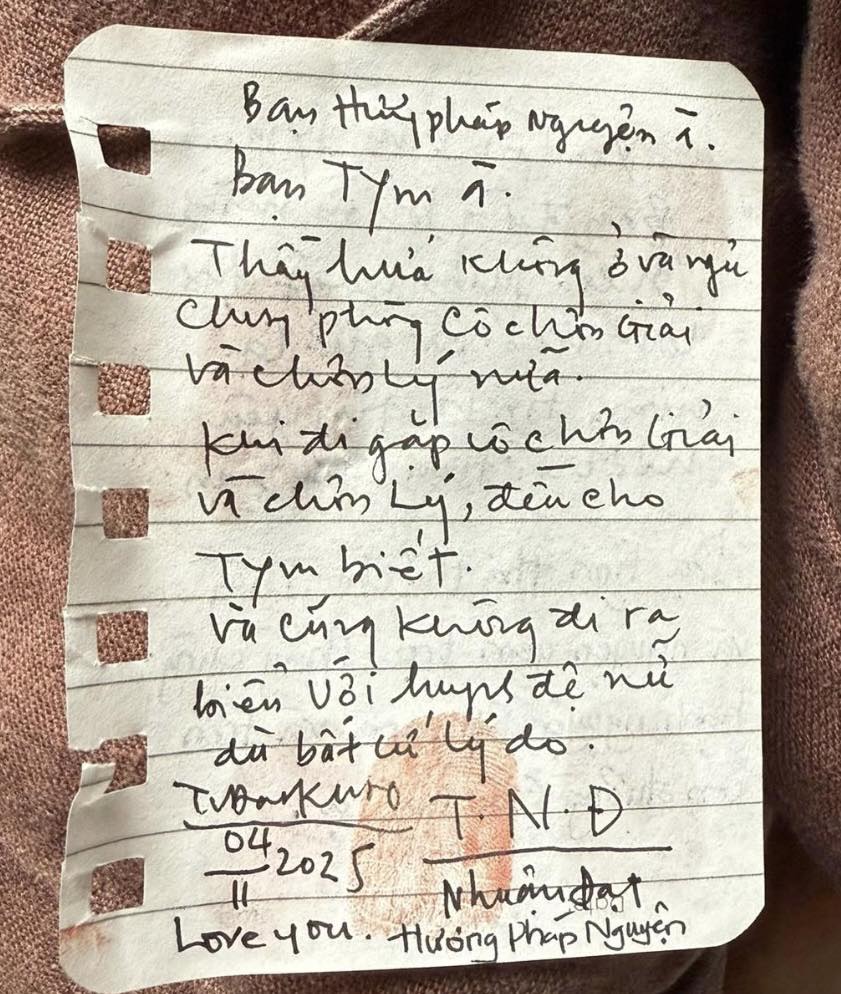 Bạn Hươngpháp Nguyện à.
bạn Tym à.
Thầy hứa không ở và ngủ
chung phòng cô chơn Giải
và chơn Lý nữa.
khi đi gặp cô chơn Giải
và chơn Lý, đều cho
Tym biết.
và cũng không đi ra
biển với huynh đệ nữ
dù bất cứ lý do.
T.N.Đ
04/11 2025
Nhuận Đạt
Love you. Hương Pháp Nguyện